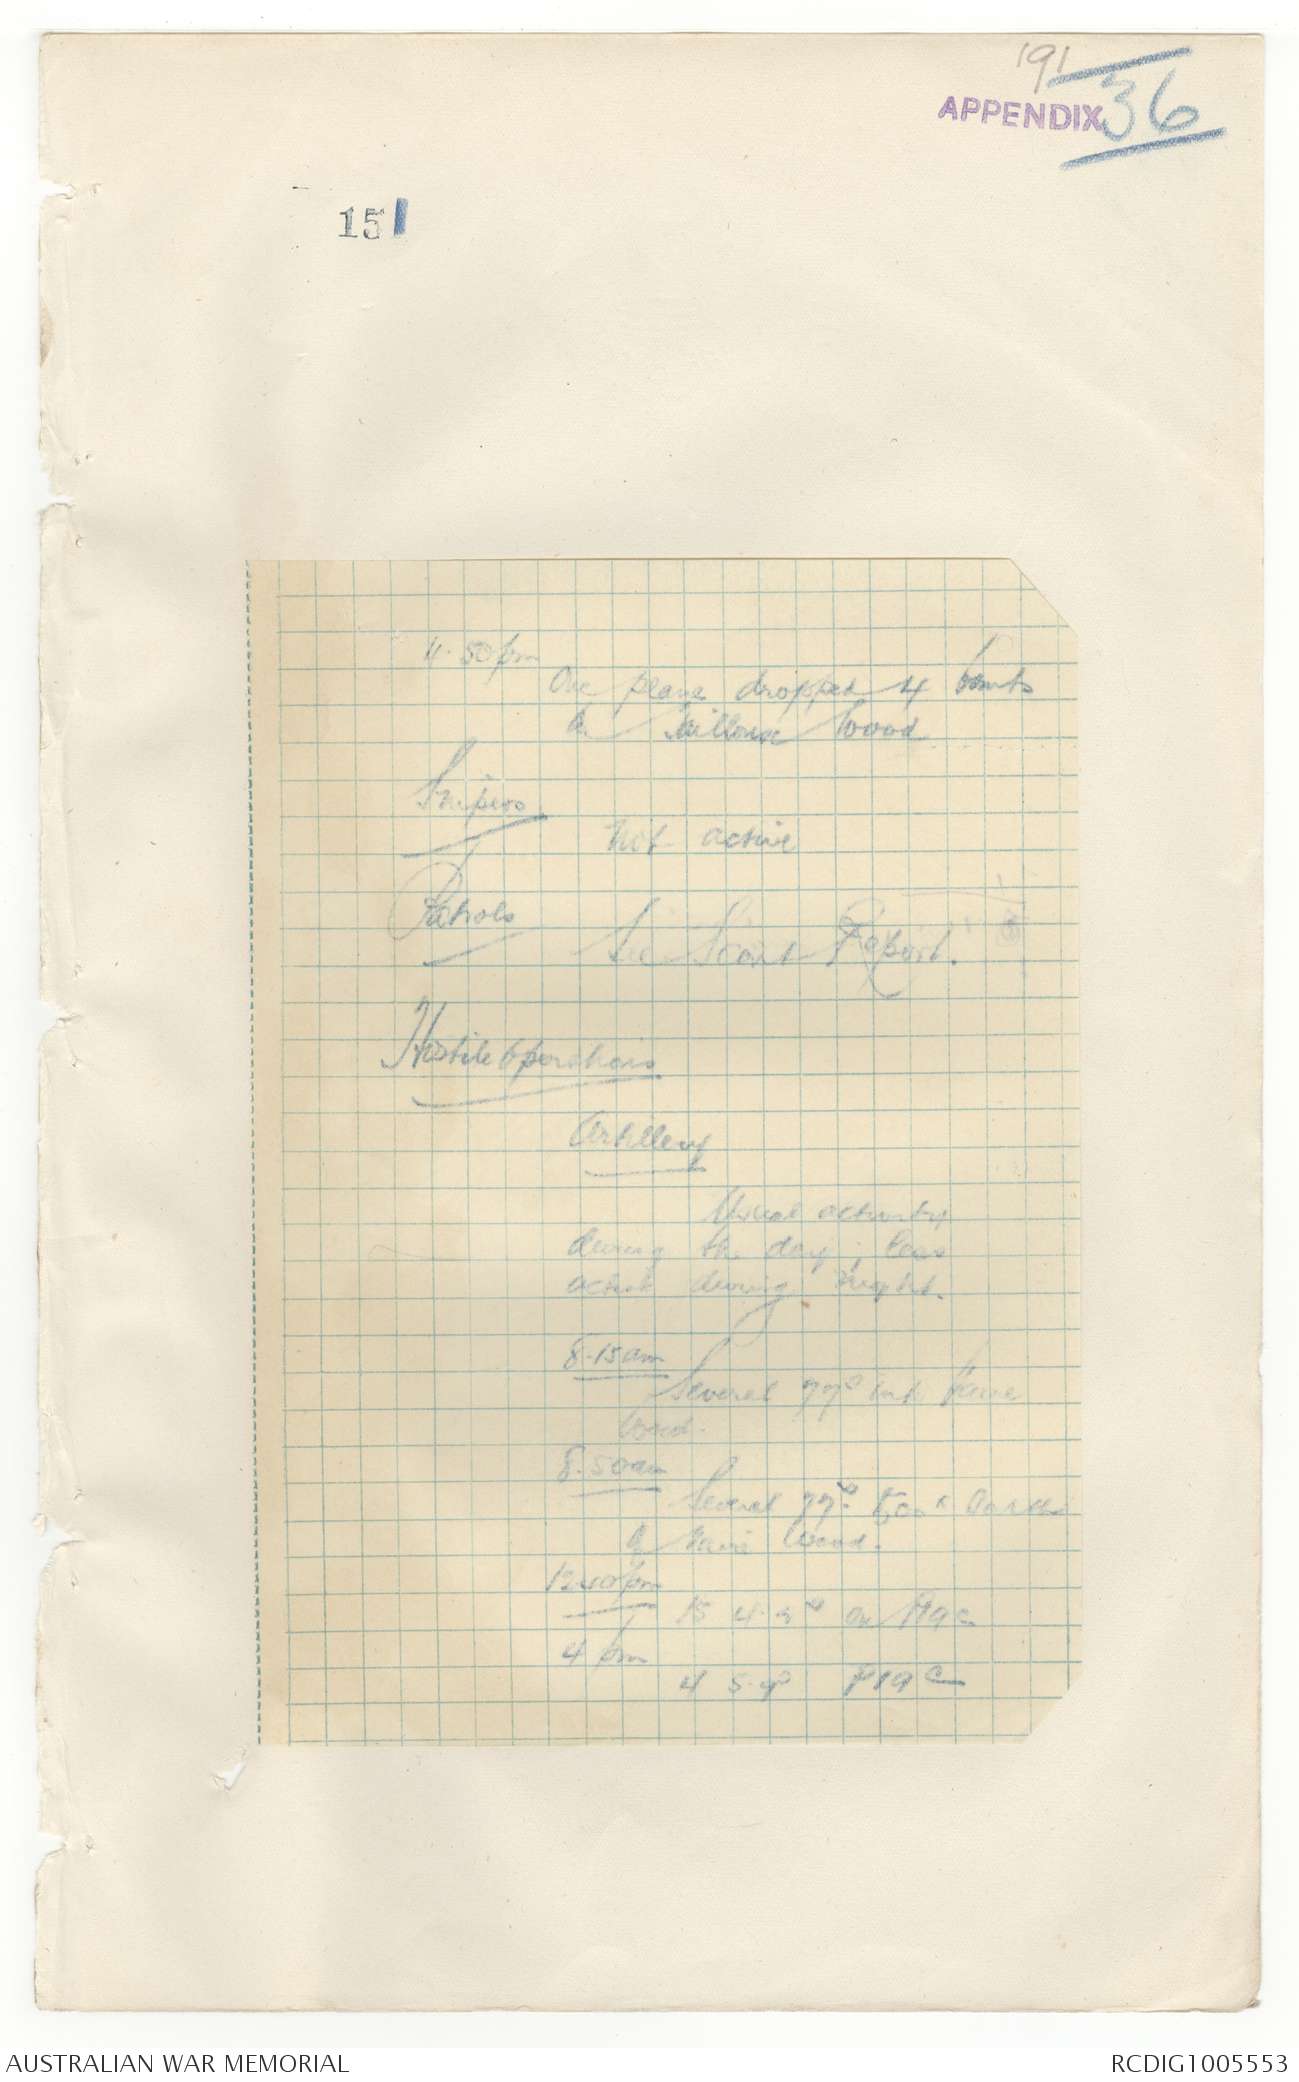 191
APPENDIX 36
151
4.50pm
One plane dropped 4 bombs
in Wood
Snipers
not active
Patrols
See Scout Report.
Hostile Operations
Artillery
Usual activity
during the day; less
active during night.
8.15am
Several 77s into
Wood.
8.50am
Several 77s 500x
of Wood.
12.40pm
15 4.2s on P19c
4 pm
4 5.9 P19c
AUSTRALIAN WAR MEMORIAL
RCDIG1005553